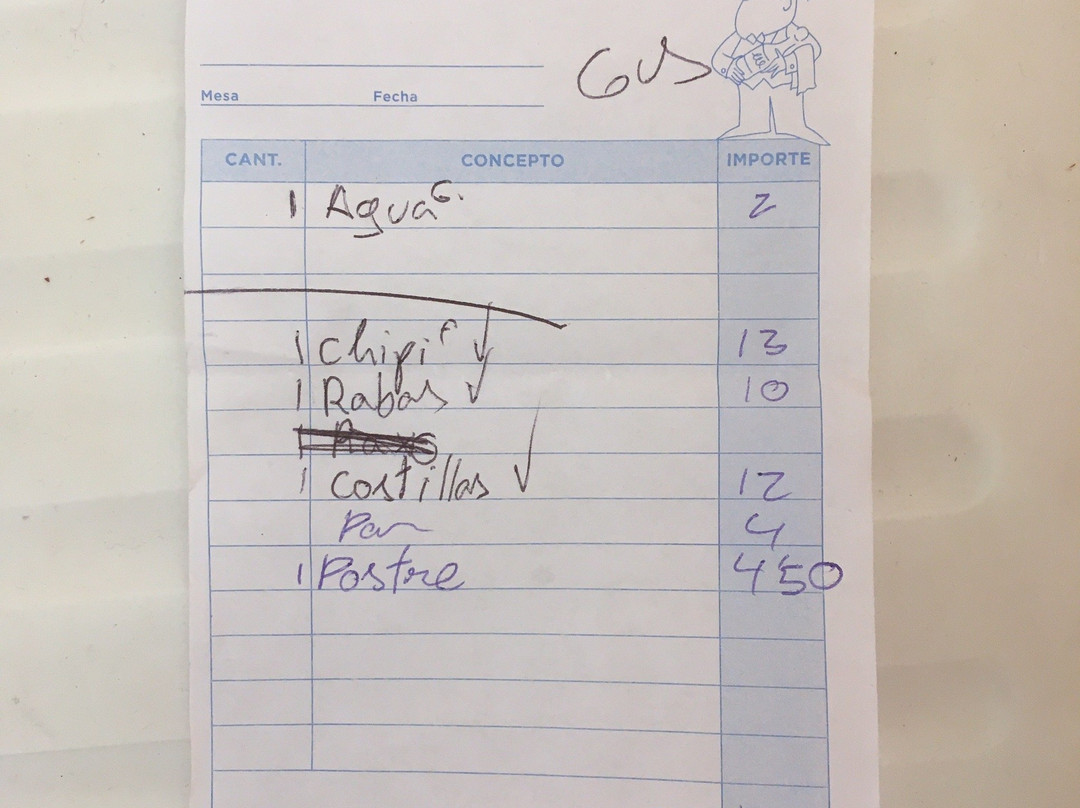 Gus
Mesa Fecha
CANT. CONCEPTO IMPORTE
1 Agua G. 2
1 Chipi F 13
1 Rabas 10
1 Costillas 12
Pan 4
1 Postre 4 50